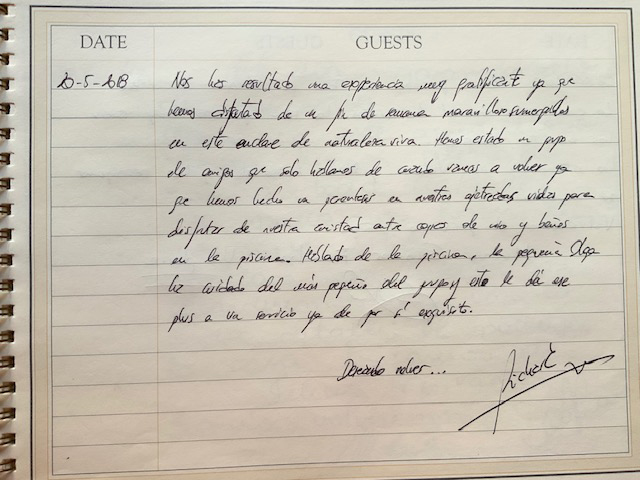 DATE GUESTS
20-5-2013 Nos ha resultado una experiencia muy gratificante ya que
hemos disfrutado de un fin de semana maravilloso sumergidos
en este enclave de naturaleza viva. Hemos estado un grupo
de amigos que solo hablamos de cuando vamos a volver ya
que hemos hecho un paréntesis en nuestras ajetreadas vidas para
disfrutar de nuestra amistad entre copas de vino y baños
en la piscina. Hablando de la piscina, la pequeña Olga
ha cuidado del más pequeño del grupo y esto le da ese
plus a un servicio ya de por sí exquisito.
Deseando volver...